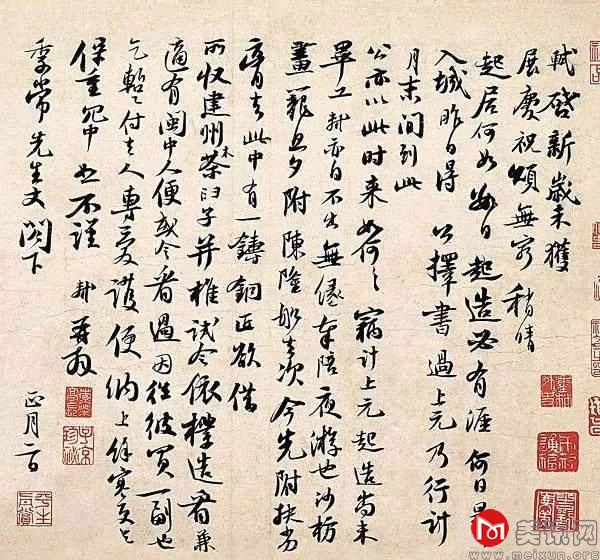 軾啓新歲未獲
展慶祝頌無窮稍晴
起居何如數日起造必有涯何日果
入城昨日得公擇書過上元乃行計
月末間到此
公亦以此時來如何〻竊計上元起造尚未
畢工軾亦自不出無緣奉陪夜遊也沙枋
畫籠旦夕附陳隆船去次今先附扶劣
膏去此中有一鑄銅匠欲借
所收建州木茶臼子并椎試令依樣造看兼
適有閩中人便或令看過因往彼買一副也
乞暫付去人專愛護便納上餘寒更乞
保重冗中恕不謹 軾再拜
季常先生丈閣下
正月二日
平生真賞
子京珍秘
www.meixun.net